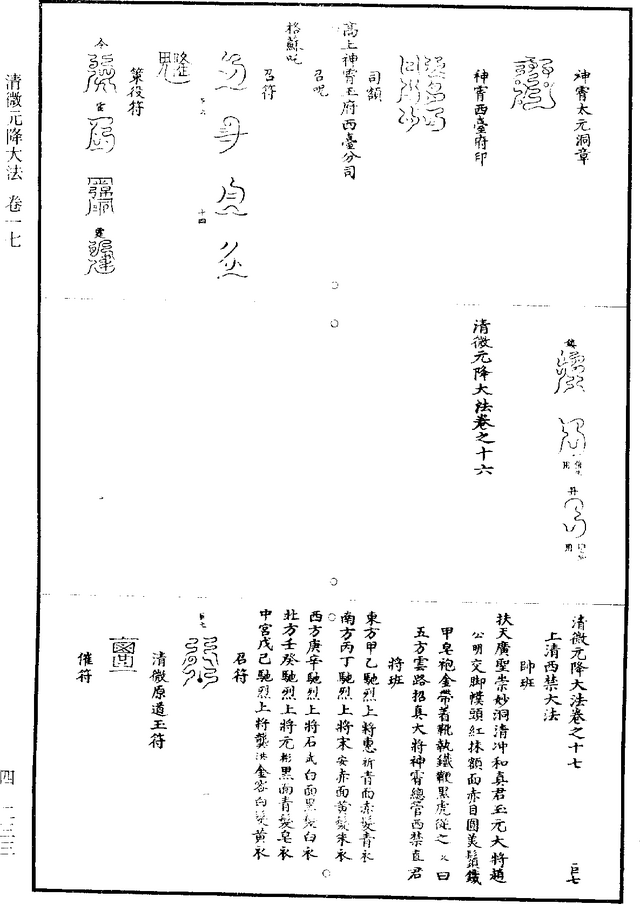 神霄太元洞章
神霄西臺府印
司額
高上神霄玉府西臺分司
召呪
格蘇吒
召符
策役符
今
清微元降大法卷之十六
清微元降大法卷之十七
上清西禁大法
帥班
扶天廣聖崇妙洞清冲和真君玉元大將趙
公明交脚幞頭紅抹額面赤目圓美鬚鐵
甲皂袍金帶著靴執鐵鞭黑虎從之又曰
五方雲路招真大將神霄總管西禁直君
將班
東方甲乙馳烈上將惠祈青面赤髮青衣
南方丙丁馳烈上將宋安赤面黃髮朱衣
西方庚辛馳烈上將石武白面黑髮白衣
北方壬癸馳烈上將元彬黑面青髮皂衣
中宮戊己馳烈上將龔洪金容白髮黃衣
召符
清微原道玉符
催符
清微元降大法 卷一七
四 二三三